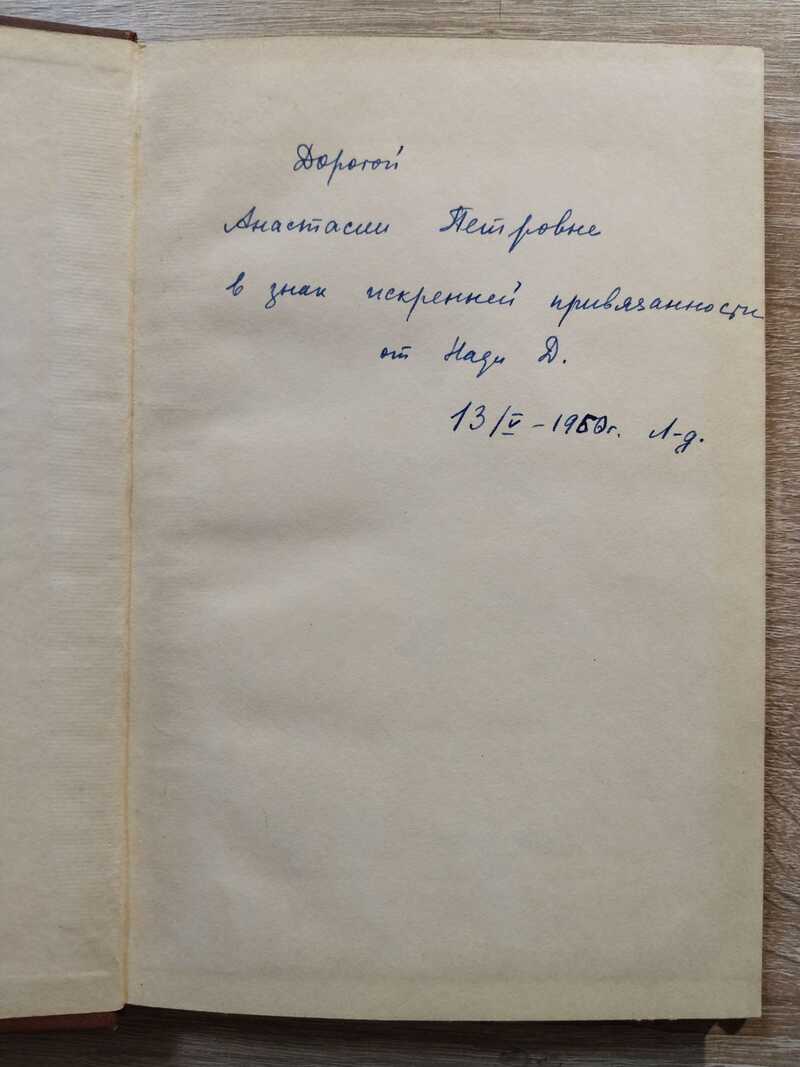 Дорогой
Анастасии Петровне
в знак искренней привязанности
от Нади Д.
13/V – 1950г. Л-д.